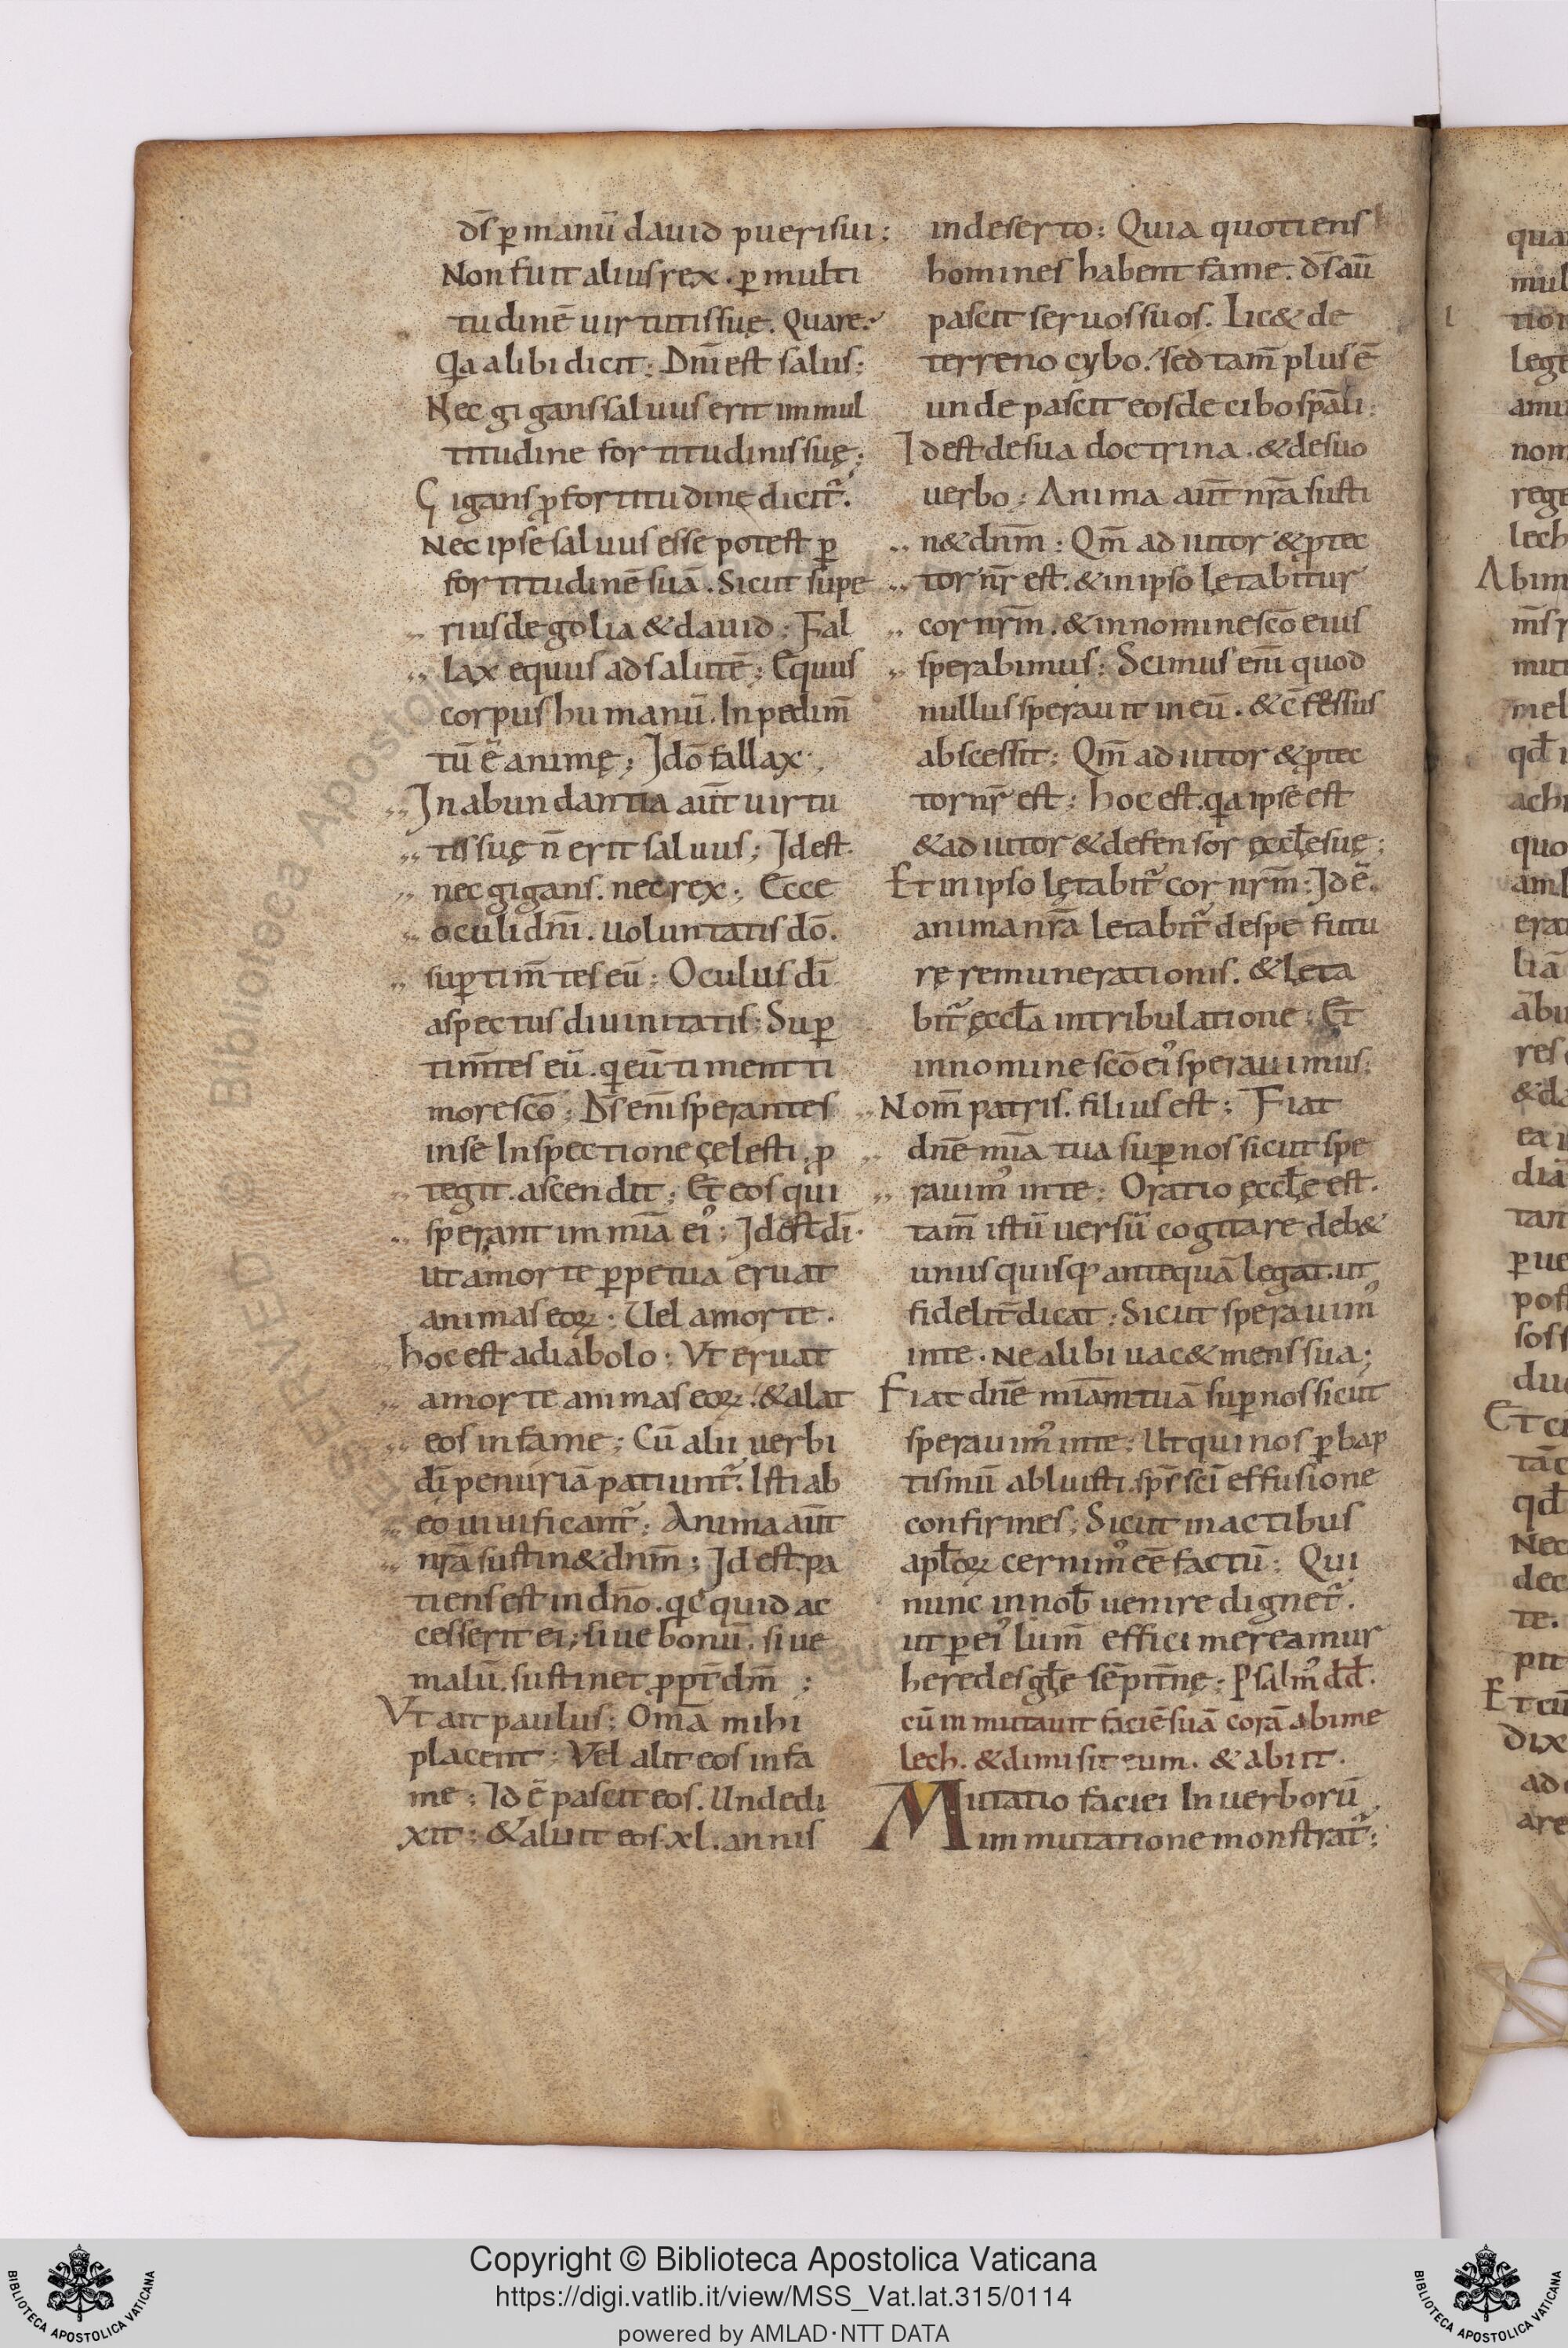 ds̄ ꝑ manū dauid puerisui;
Non fuit alius rex. ꝑ multi
tudinē uirtutis suę. Quare.
Qa alibi dicit; Dn̄i est salus;
Nec gigans saluus erit im mul
titudine fortitudinis suę;
Gigans ꝓ fortitudine dicit᷑.
Nec ipse saluus esse potest ꝑ
fortitudinē suā. Sicut supe
rius de golia & dauid; Fal
lax equus ad salutē; Equus
corpus humanū. Inpedim̄
tū ē animę; Ideō fallax;
In abundantia aūt uirtu
tis suę n̄ erit saluus; Id est.
nec gigans. nec rex; Ecce
oculi dn̄i. uoluntatis dō.
suꝑ tim̄tes eū; Oculus dī
aspectus diuinitatis; Suꝑ
tim̄tes eū. qi eū timent ti
more scō; Ds̄ eni᷑ sperantes
in se Inspectione cęlesti. ꝓ
tegit. ascendit; Et eos qui
sperant im mi᷑a ei᷒; Id est dī.
ut a morte ꝑpetua eruat
animas eoꝝ; Uel a morte.
hoc est a diabolo; Vt eruat
a morte animas eoꝝ. & alat
eos in fame; Cū alii uerbi
dī penuriā patiunt᷑. Isti ab
eo uiuificant᷑; Anima aūt
nr̄a sustin& dnm̄; Id est. pa
tiens est in dn̄o. qc̄quid ac
cesserit ei; siue bonū. siue
malū. sustinet ꝓpt̄ dm̄;
Vt ait paulus; Om̄a mihi
placent; Vel alit eos in fa
me; Id ē pascit eos. Unde di
xit; & aluit eos. xl. annis
in deserto; Quia quotiens
homines habent fame. ds̄ aū
pascit seruos suos. Lic& de
terreno cybo. sed tam̄ plus ē
unde pascit eos de cibo spāli;
Id est de sua doctrina. & de suo
uerbo; Anima aūt nr̄a susti
n& dnm̄; Qm̄ adiutor & ꝓtec
tor nr̄ est. & in ipso lętabitur
cor nrm̄. & in nomine scō eius
sperabimus; Scimus eni᷑ quod
nullus sperauit in eū. & c̄fessus
abscessit; Qm̄ adiutor & ꝓtec
tor nr̄ est; hoc est. qa ipse est
& adiutor & defensor ęccl̄e suę;
Et in ipso lętabit᷑ cor nrm̄; Id ē.
anima nr̄a letabit᷑ de spe futu
rę remunerationis. & lęta
bit᷑ ęccl̄a in tribulatione; Et
in nomine scō ei᷒ sperauimus;
Nom̄ patris. filius est; Fiat
dn̄e mi᷑a tua suꝑ nos sicut spe
rauim᷒ in te; Oratio ęccl̄ę est.
tam̄ istū uersū cogitare deb&
unusquisq; antequā legat. ut
fidelit̄ dicat; Sicut sperauim᷒
in te. Ne alibi uac& mens sua;
Fiat dn̄e mi᷑am tuā suꝑ nos sicut
sperauim᷒ in te; Ut qui nos ꝑ bap
tismū abluisti. sp̄s sci᷑ effusione
confirmes; Sicut in actibus
apl̄oꝝ cernim᷒ eē factū; Qui
nunc in nob̄ uenire dignet᷑.
ut ꝑ ei᷒ lum̄ effici mereamur
heredes gl̄ę sēpit̄nę; Psalm᷒ dd̄.
cū in mutauit faciē suā corā abime
lech. & dimisit eum. & abiit.
Mutatio faciei In uerborū
im mutatione monstrat᷑;
Copyright © Biblioteca Apostolica Vaticana
https://digi.vatlib.it/view/MSS_Vat.lat.315/0114
powered by AMLAD·NTT DATA
BIBLIOTECA APOSTOLICA VATICANA
BIBLIOTECA APOSTOLICA VATICANA